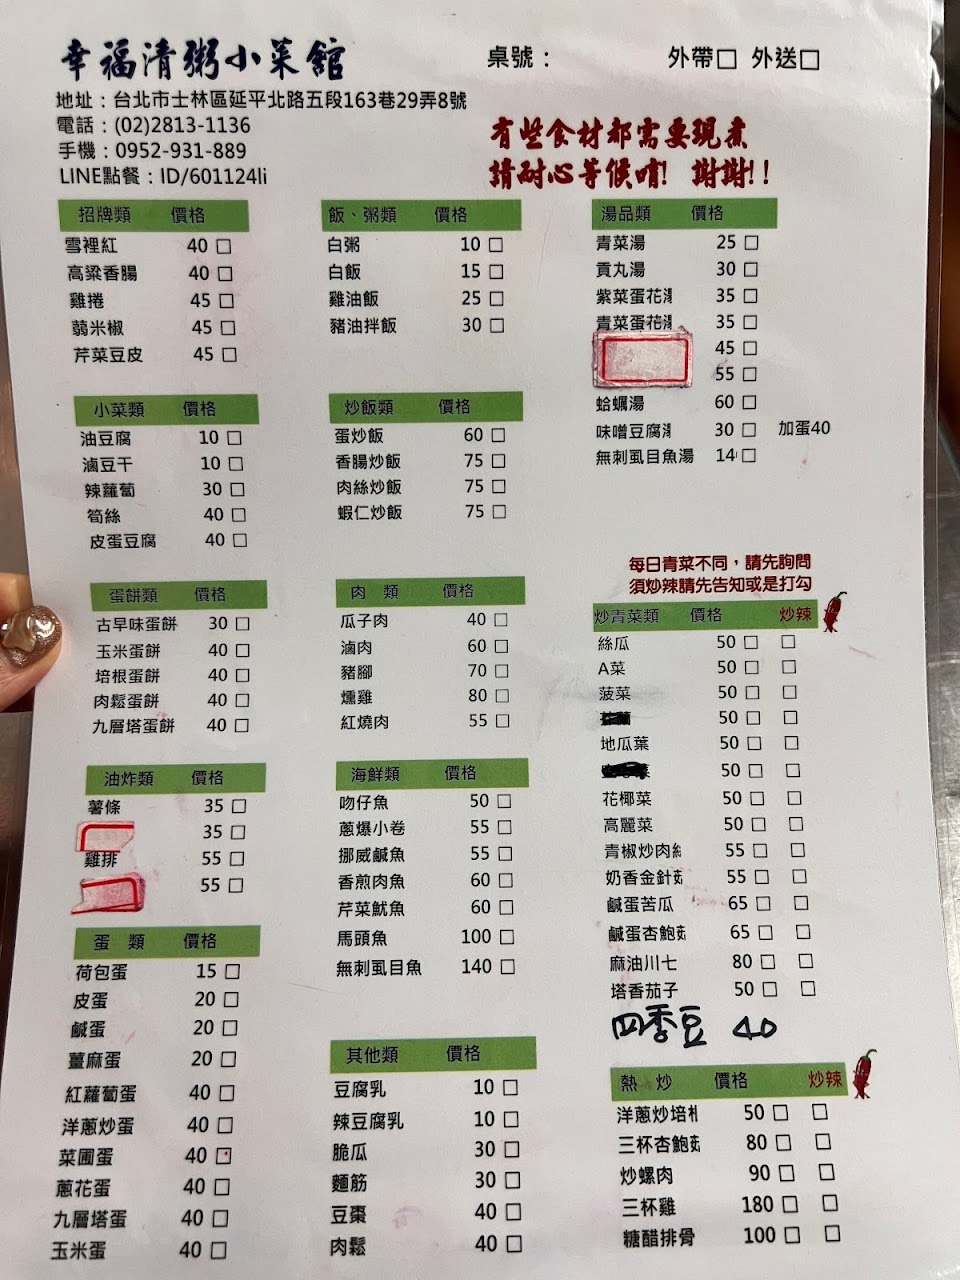 幸福清粥小菜館
桌號： 外帶□ 外送□
地址：台北市士林區延平北路五段163巷29弄8號
電話：(02)2813-1136
手機：0952-931-889
LINE點餐：ID/601124li
有些食材都需要現煮
請耐心等候唷! 謝謝!!
招牌類 價格
雪裡紅 40 □
高粱香腸 40 □
雞捲 45 □
蒻米椒 45 □
芹菜豆皮 45 □
小菜類 價格
油豆腐 10 □
滷豆干 10 □
辣蘿蔔 30 □
筍絲 40 □
皮蛋豆腐 40 □
蛋餅類 價格
古早味蛋餅 30 □
玉米蛋餅 40 □
培根蛋餅 40 □
肉鬆蛋餅 40 □
九層塔蛋餅 40 □
油炸類 價格
薯條 35 □
35 □
雞排 55 □
55 □
蛋 類 價格
荷包蛋 15 □
皮蛋 20 □
鹹蛋 20 □
薑麻蛋 20 □
紅蘿蔔蛋 40 □
洋蔥炒蛋 40 □
菜圃蛋 40 □
蔥花蛋 40 □
九層塔蛋 40 □
玉米蛋 40 □
飯、粥類 價格
白粥 10 □
白飯 15 □
雞油飯 25 □
豬油拌飯 30 □
炒飯類 價格
蛋炒飯 60 □
香腸炒飯 75 □
肉絲炒飯 75 □
蝦仁炒飯 75 □
肉 類 價格
瓜子肉 40 □
滷肉 60 □
豬腳 70 □
燻雞 80 □
紅燒肉 55 □
海鮮類 價格
吻仔魚 50 □
蔥爆小卷 55 □
挪威鹹魚 55 □
香煎肉魚 60 □
芹菜魷魚 60 □
馬頭魚 100 □
無刺虱目魚 140 □
其他類 價格
豆腐乳 10 □
辣豆腐乳 10 □
脆瓜 30 □
麵筋 30 □
豆棗 40 □
肉鬆 40 □
湯品類 價格
青菜湯 25 □
貢丸湯 30 □
紫菜蛋花湯 35 □
青菜蛋花湯 35 □
45 □
55 □
蛤蠣湯 60 □
味噌豆腐湯 30 □ 加蛋40
無刺虱目魚湯 14 □
每日青菜不同，請先詢問
須炒辣請先告知或是打勾
炒青菜類 價格 炒辣
絲瓜 50 □ □
A菜 50 □ □
菠菜 50 □ □
50 □ □
地瓜葉 50 □ □
50 □ □
花椰菜 50 □ □
高麗菜 50 □ □
青椒炒肉絲 55 □ □
奶香金針菇 55 □ □
鹹蛋苦瓜 65 □ □
鹹蛋杏鮑菇 65 □ □
麻油川七 80 □ □
塔香茄子 50 □ □
四季豆 40
熱 炒 價格 炒辣
洋蔥炒培根 50 □ □
三杯杏鮑菇 80 □ □
炒螺肉 90 □ □
三杯雞 180 □ □
糖醋排骨 100 □ □